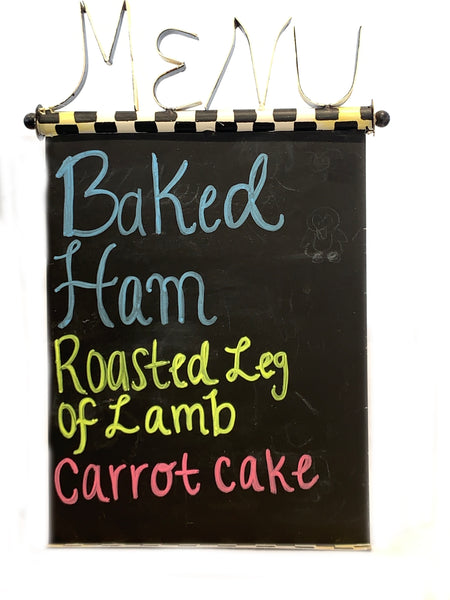 MENU
Baked
Ham
Roasted Leg
of Lamb
Carrot cake